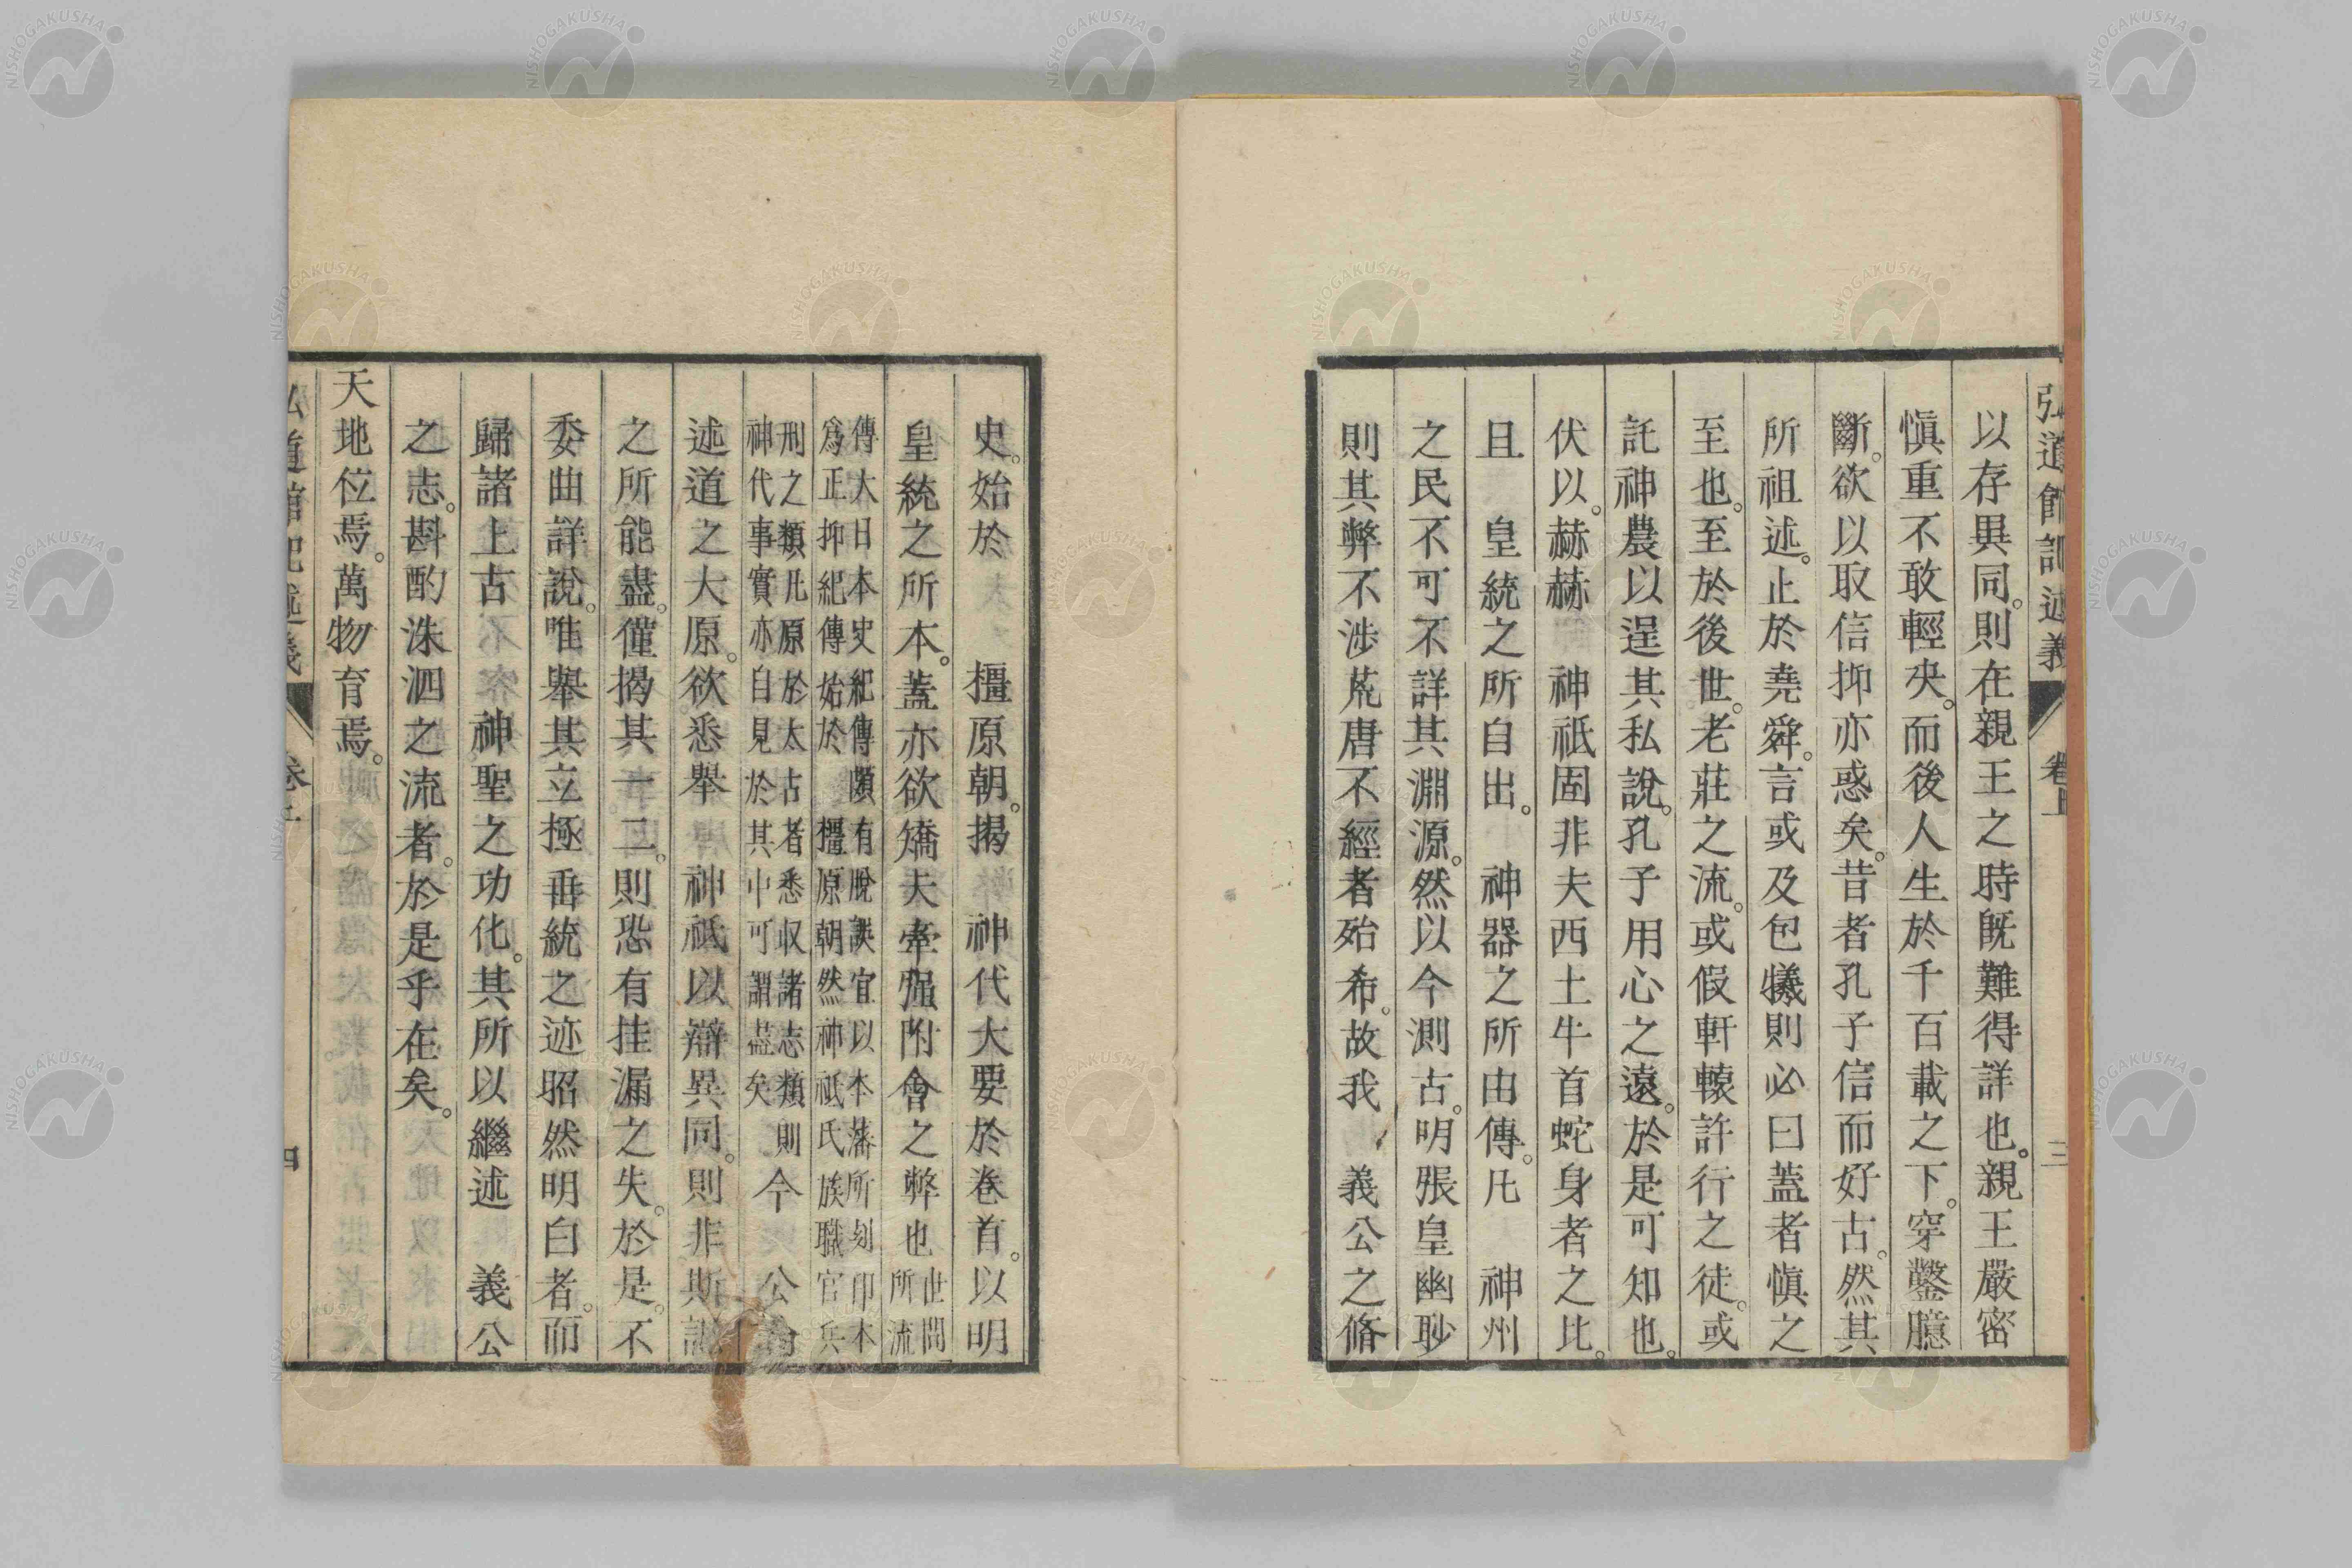 弘道館記述義 卷上 三
以存異同。則在親王之時既難得詳也。親王嚴密
愼重不敢輕決。而後人生於千百載之下。穿鑿臆
斷。欲以取信抑亦惑矣。昔者孔子信而好古。然其
所祖述。止於堯舜。言或及包犧則必曰蓋者愼之
至也。至於後世。老莊之流。或假軒轅許行之徒。或
託神農以逞其私說。孔子用心之遠。於是可知也。
伏以。赫赫 神祇固非夫西土牛首蛇身者之比。
且 皇統之所自出。 神器之所由傳。凡 神州
之民不可不詳其淵源。然以今測古。明張皇幽眇
則其弊不涉荒唐不經者殆希。故我 義公之脩
史。始於 橿原朝。揭 神代大要於卷首。以明
皇統之所本。蓋亦欲矯夫牽强附會之弊也世間所流
傳大日本史紀傳頗有脫誤宜以本藩所刻印本
爲正抑紀傳始於 橿原朝然神祇氏族職官兵
刑之類凡原於太古者悉収諸志類則
神代事實亦自見於其中可謂盡矣今 公
述道之大原。欲悉舉 神祇以辯異同。則非斯記
之所能盡。僅揭其一二。則恐有挂漏之失。於是。不
委曲詳說。唯舉其立極垂統之迹昭然明白者。而
歸諸上古 神聖之功化。其所以繼述 義公
之志。斟酌洙泗之流者。於是乎在矣。
天地位焉。萬物育焉。
弘道館記述義 卷上 四
NISHOGAKUSHA